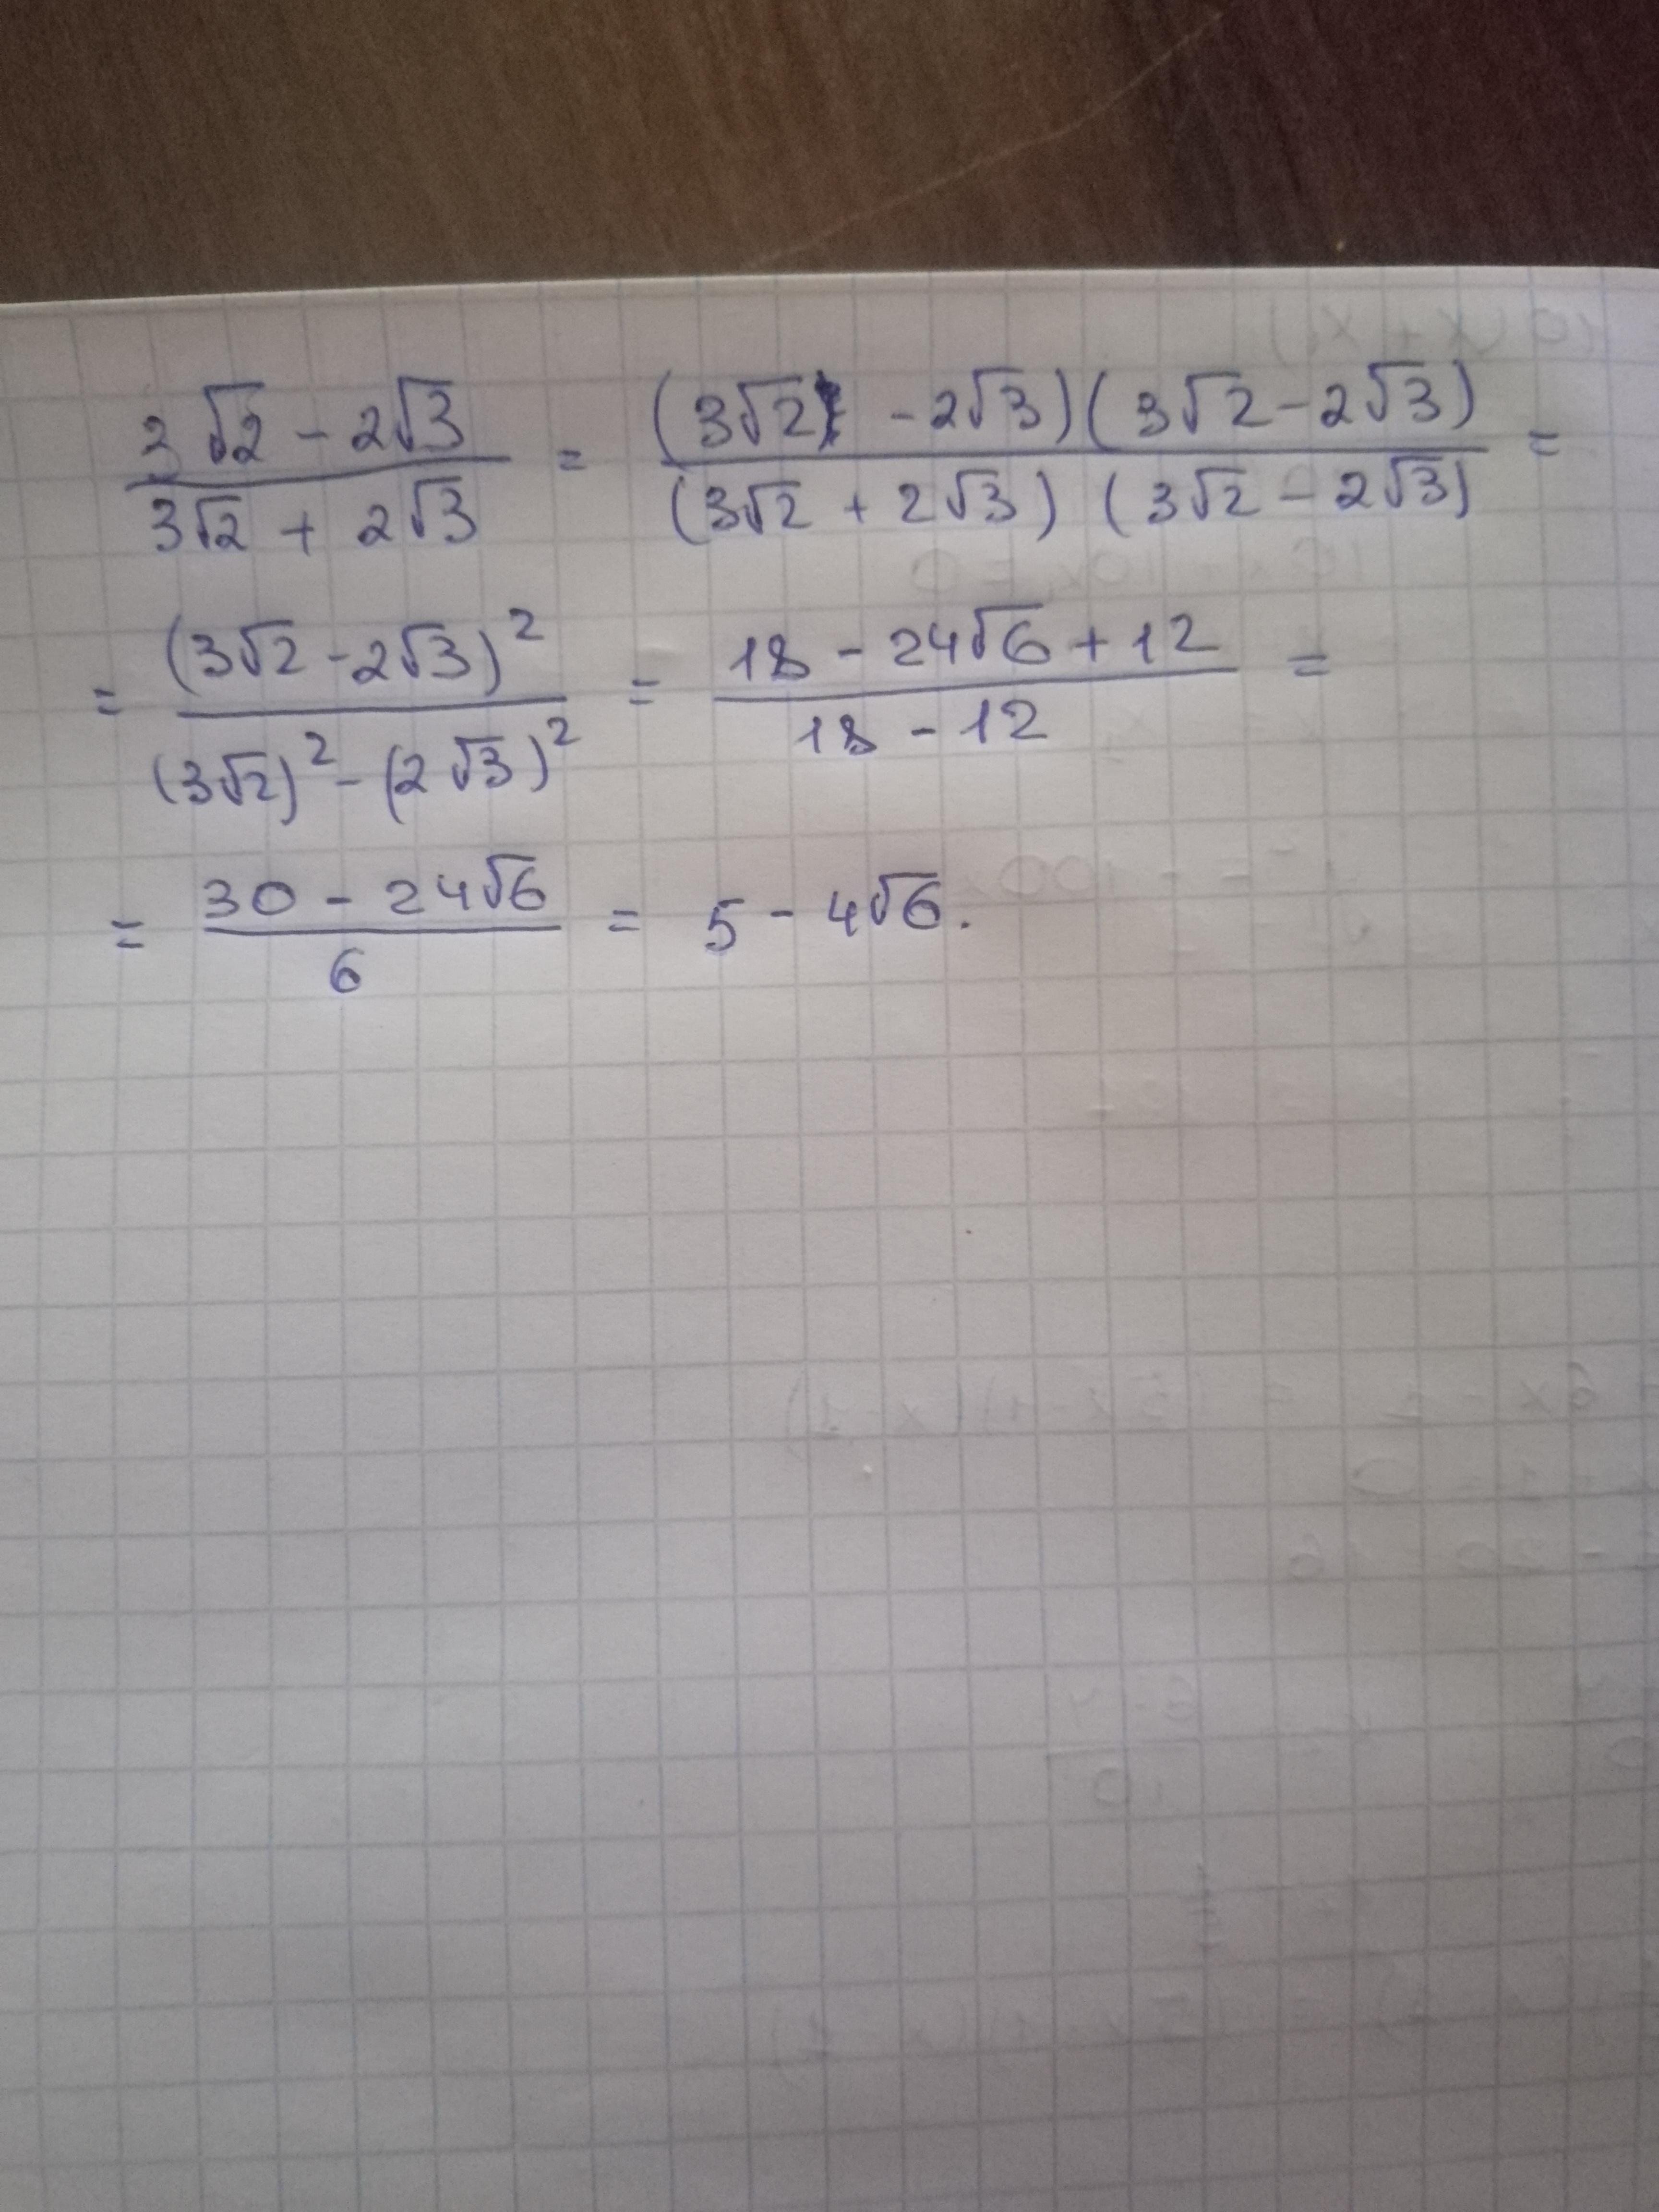 (3√2 - 2√3)/(3√2 + 2√3) = ((3√2 - 2√3)(3√2 - 2√3))/((3√2 + 2√3)(3√2 - 2√3)) =
= (3√2 - 2√3)²/((3√2)² - (2√3)²) = (18 - 24√6 + 12)/(18 - 12) =
= (30 - 24√6)/6 = 5 - 4√6.